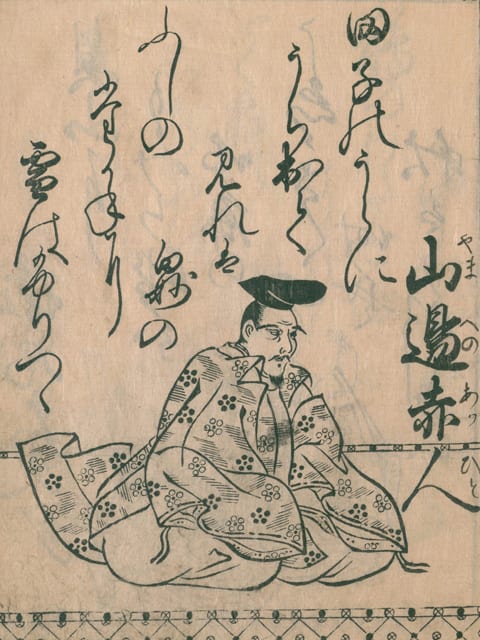 山邊赤人
やま への あか ひと
田子のうらに
うち出て
見れは
白妙の
ふしの
たかねに
雪はふりつゝ